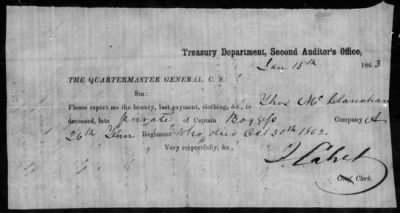 Treasury Department, Second Auditor's Office,
Jan 15th 1863
THE QUARTERMASTER GENERAL, C. S.:
SIR:
Please report me the bounty, last payment, clothing, &c., to Thos McClanahan
deceased, late private of Captain Boggess Company A
26th Tenn Regiment who died Oct 30th 1862.
Very respectfully, &c.,
Chief Clerk.